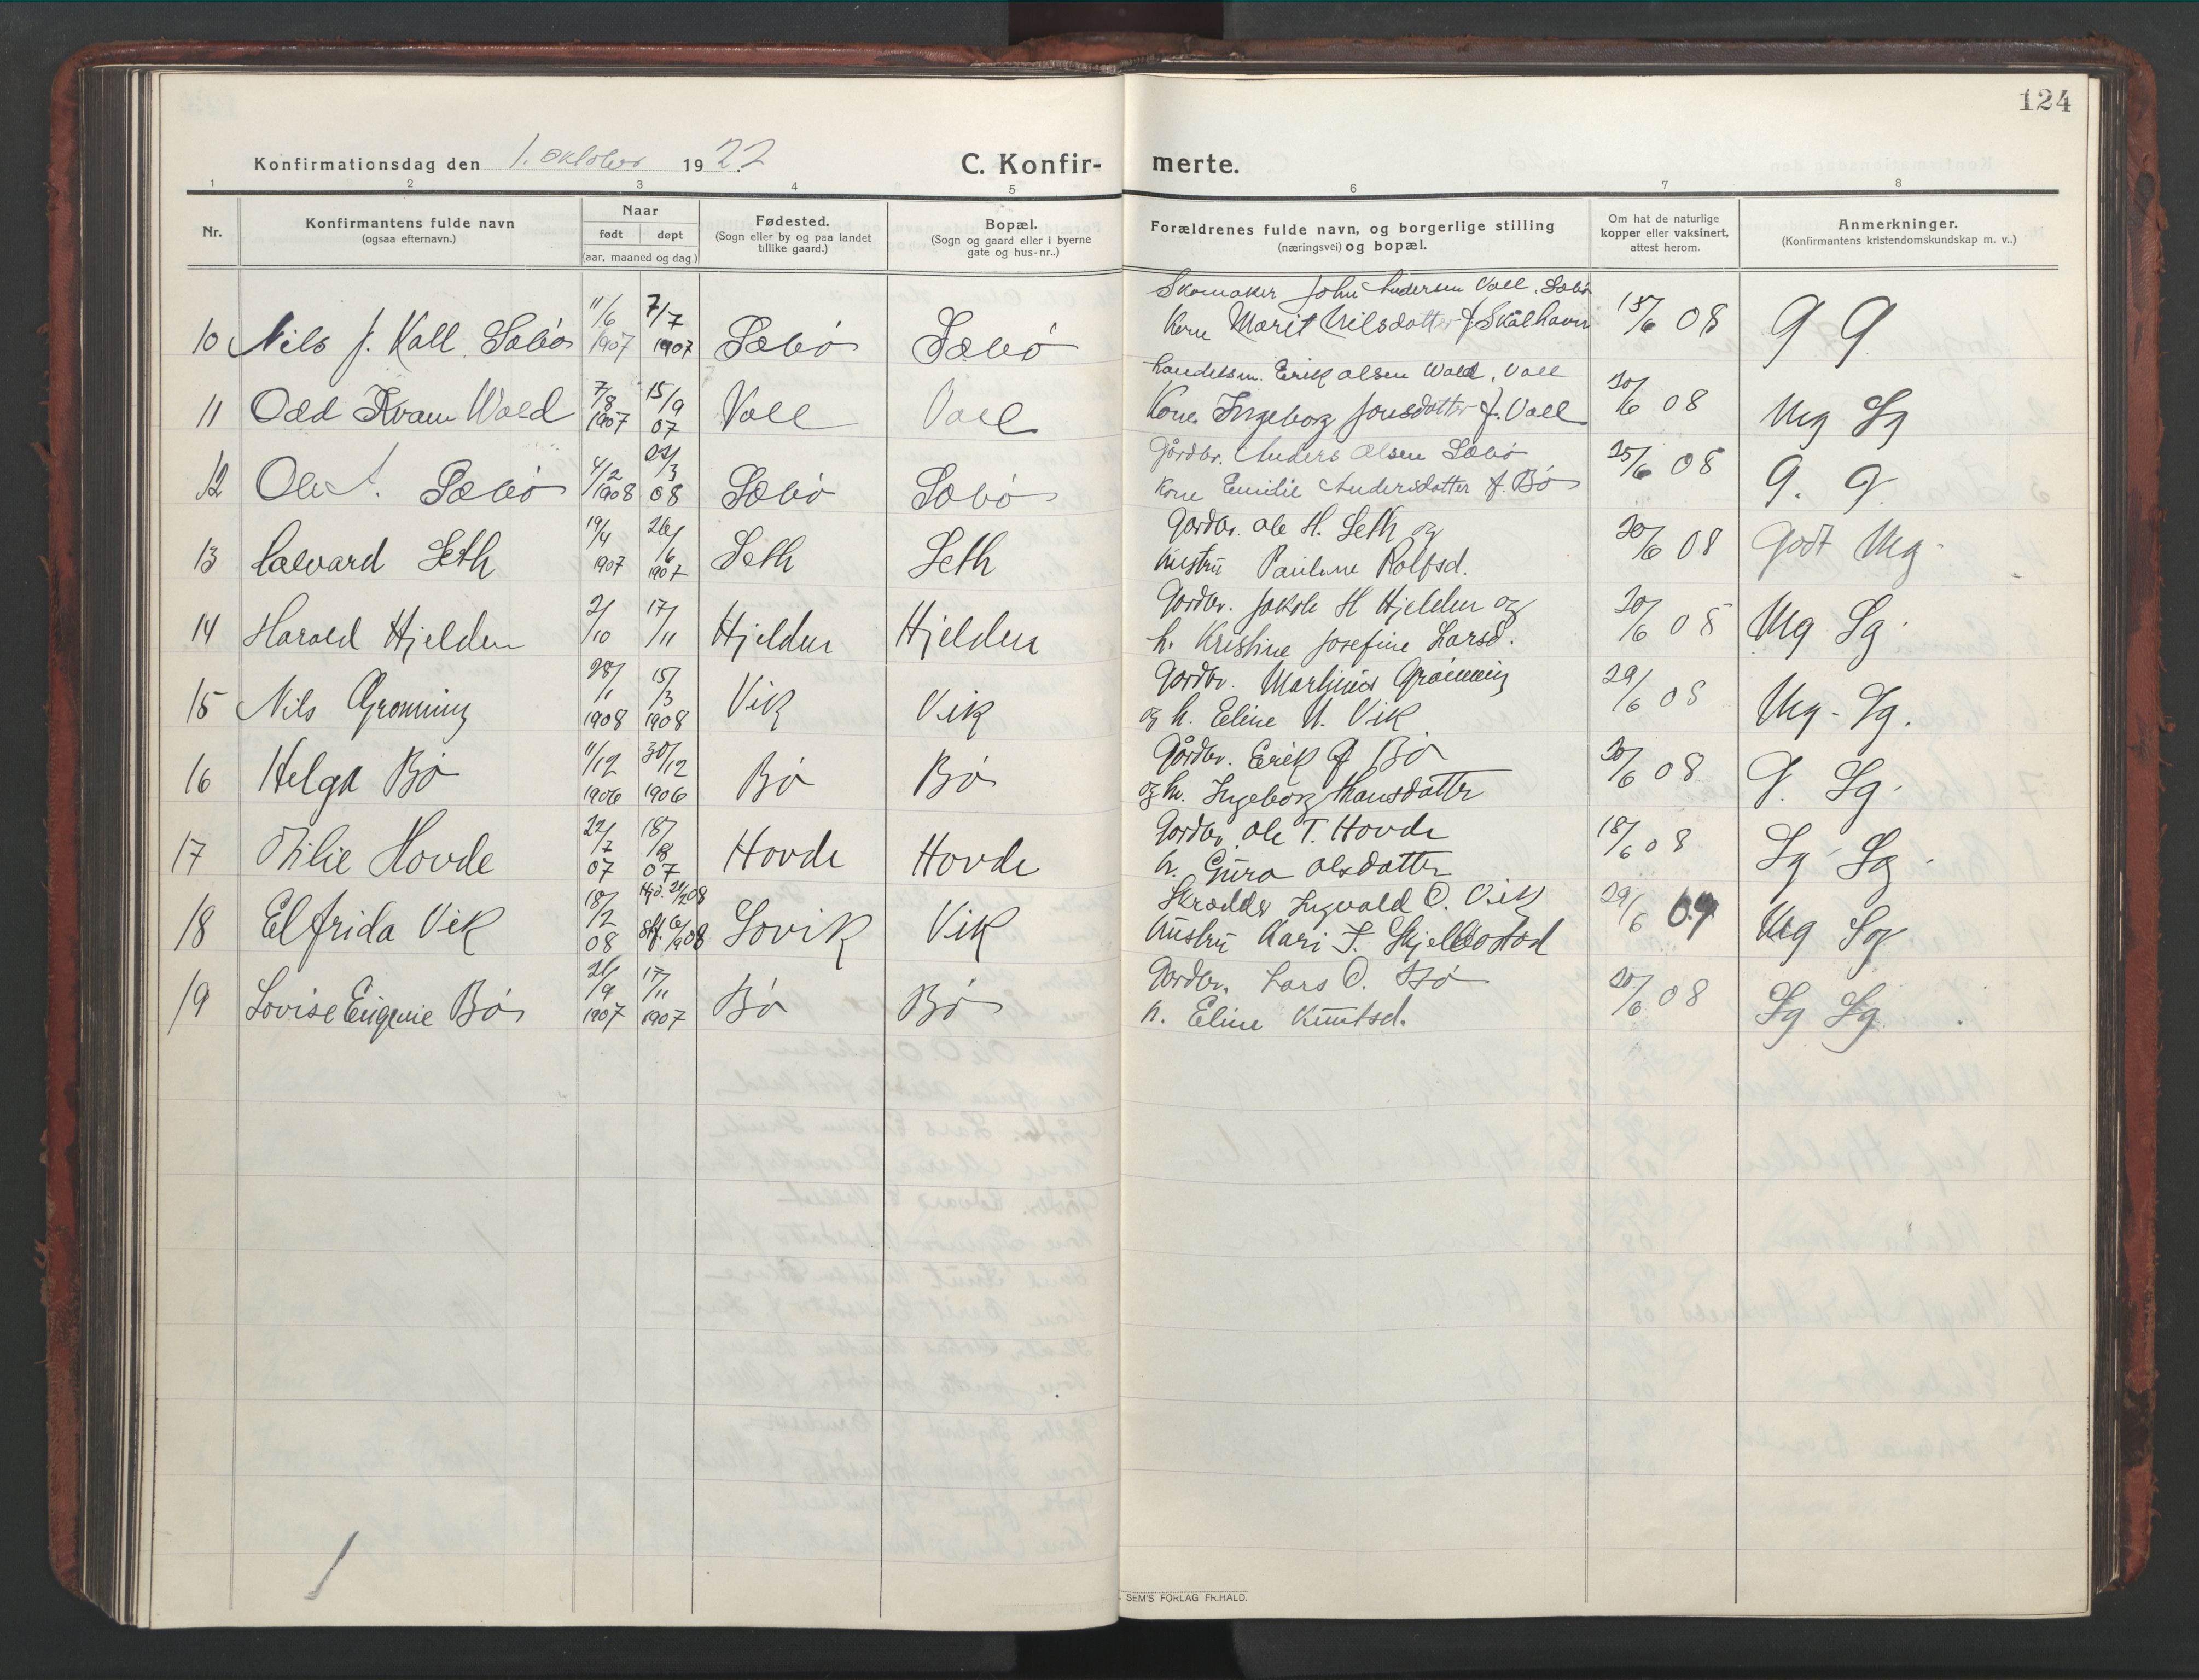 124
Konfirmationsdag den 1. oktober 1922. C. Konfir- merte.
1 2 3 4 5 6 7 8
Nr. Konfirmantens fulde navn (ogsaa efternavn.) Naar født døpt (aar, maaned og dag.) Fødested. (Sogn eller by og paa landet tillike gaard.) Bopæl. (Sogn og gaard eller i byerne gate og hus-nr..) Forældrenes fulde navn, og borgerlige stilling (næringsvei) og bopæl. Om hat de naturlige kopper eller vaksinert, attest herom. Anmerkninger. (Konfirmantens kristendomskundskap m. v..)
Skomaker John Andersen Vall, Sæbø
10 Nils J. Vall Sæbø 11/6 1907 7/7 1907 Sæbø Sæbø Kone Marit Nilsdatter f. Skålhavn 15/6 08 G G
Handelsm. Erik Olsen Wold, Voll
11 Odd Kvam Wold 7/8 1907 15/9 07 Voll Voll Kone Ingeborg Jonsdatter f. Voll 20/6 08 Mg Sg
Gårdbr. Anders Olsen Sæbø
12 Ole A. Sæbø 4/2 1908 /3 08 Sæbø Sæbø Kone Emilie Andersdatter f. Bø 25/6 08 G. G.
Gårdbr. Ole H. Seth og
13 Halvard Seth 19/4 1907 26/6 1907 Seth Seth hustru Pauline Rolfsd. 20/6 08 Godt Mg
Gårdbr. Jakob H Hjelden og
14 Harald Hjelden 2/10 17/11 Hjelden Hjelden h. Kristine Josefine Larsd. 20/6 08 Mg Sg.
Gårdbr. Martinus Grønning
15 Nils Grønning 28/1 1908 15/3 1908 Vik Vik og h. Eline N. Vik 29/6 08 Mg - Sg.
Gårdbr. Erik Bø
16 Helga Bø 11/12 1906 30/12 1906 Bø Bø og h. Ingeborg Hansdatter 20/6 08 G. Sg.
Gårdbr. Ole T. Hovde
17 Otilie Hovde 22/7 07 18/8 07 Hovde Hovde h. Guro Olsdatter 18/6 08 Sg Sg
Skrædder Ingvald O. Vik
18 Elfrida Vik 18/2 08 Hjd. 08 Lovik Vik hustru Kari I. Skjellbostad 29/6 09 Mg Sg
Gårdbr. Lars O. Bø
19 Lovise Eugenie Bø 21/9 1907 17/11 1907 Bø Bø h. Eline Knutsd. 20/6 08 Sg Sg.
SEM'S FORLAG FR.HALD.